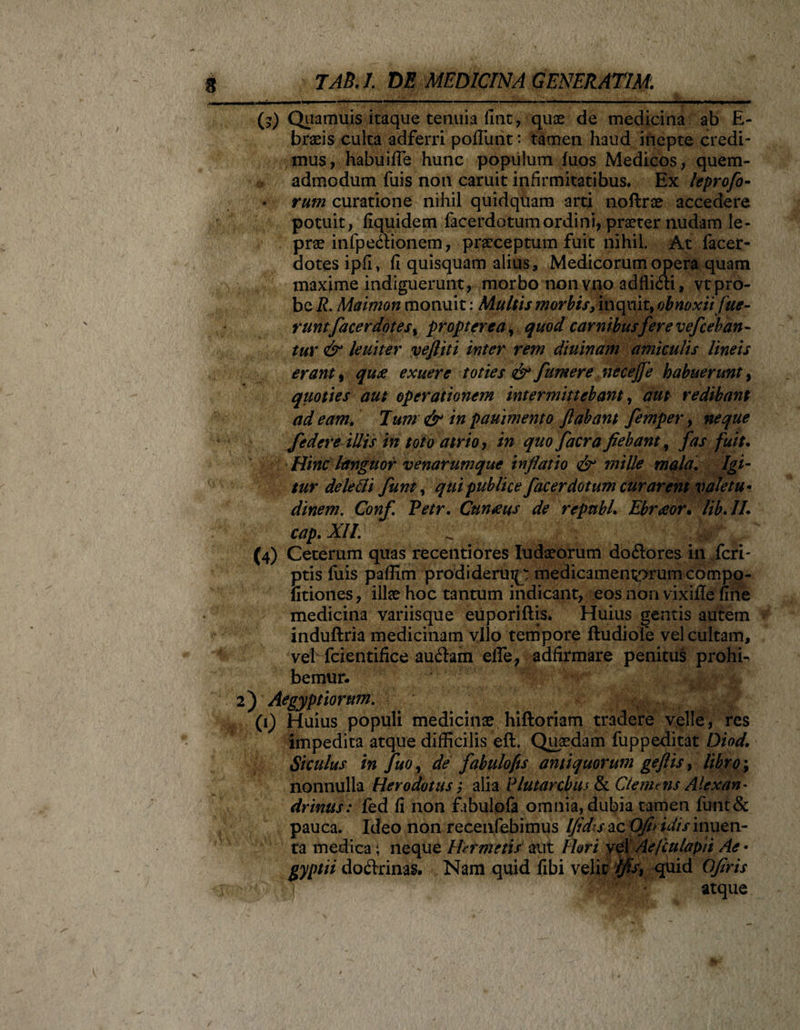 8 TAB. I. DE MEDICINA GENERATIM.
(3) Quamuis itaque tenuia ſint, quæ de medicina ab E-
bræis culta adferri poſſunt: tamen haud inepte credi-
mus, habuiſſe hunc populum ſuos Medicos, quem-
admodum ſuis non caruit infirmitatibus. Ex leproſo-
rum curatione nihil quidquam arti noſtræ accedere
potuit, ſiquidem ſacerdotum ordini, præter nudam le-
præ inſpectionem, præceptum fuit nihil. At ſacer-
dotes ipſi, ſi quisquam alius, Medicorum opera quam
maxime indiguerunt, morbo non vno adflicti, vt pro-
be R. Maimon monuit: Multis morbis, inquit, obnoxii fue-
runt ſacerdotes, propterea, quod carnibus fere veſceban-
tur & leuiter veſtiti inter rem diuinam amiculis lineis
erant, quæ exuere toties & ſumere neceſſe habuerunt,
quoties aut operationem intermittebant, aut redibant
ad eam. Tum & in pauimento ſtabant ſemper, neque
ſedere illis in toto atrio, in quo ſacra fiebant, fas fuit.
Hinc languor venarumque inflatio & mille mala. Igi-
tur delecti ſunt, qui publice ſacerdotum curarent valetu-
dinem. Conf. Petr. Cunæus de republ. Ebræor. lib. II.
cap. XII.
(4) Ceterum quas recentiores Iudæorum doctores in ſcri-
ptis ſuis paſſim prodiderunt medicamentorum compo-
ſitiones, illæ hoc tantum indicant, eos non vixiſſe ſine
medicina variisque euporiſtis. Huius gentis autem
induſtria medicinam vllo tempore ſtudioſe vel cultam,
vel ſcientifice auctam eſſe, adfirmare penitus prohi-
bemur.
2) Aegyptiorum.
(1) Huius populi medicinæ hiſtoriam tradere velle, res
impedita atque difficilis eſt. Quædam ſuppeditat Diod.
Siculus in ſuo, de fabuloſis antiquorum geſtis, libro;
nonnulla Herodotus; alia Plutarchus & Clemens Alexan-
drinus: ſed ſi non fabuloſa omnia, dubia tamen ſunt &
pauca. Ideo non recenſebimus Iſidis ac Oſiridis inuen-
ta medica; neque Hermetis aut Hori vel Aeſculapii Ae-
gyptii doctrinas. Nam quid ſibi velit Iſis, quid Oſiris
atque